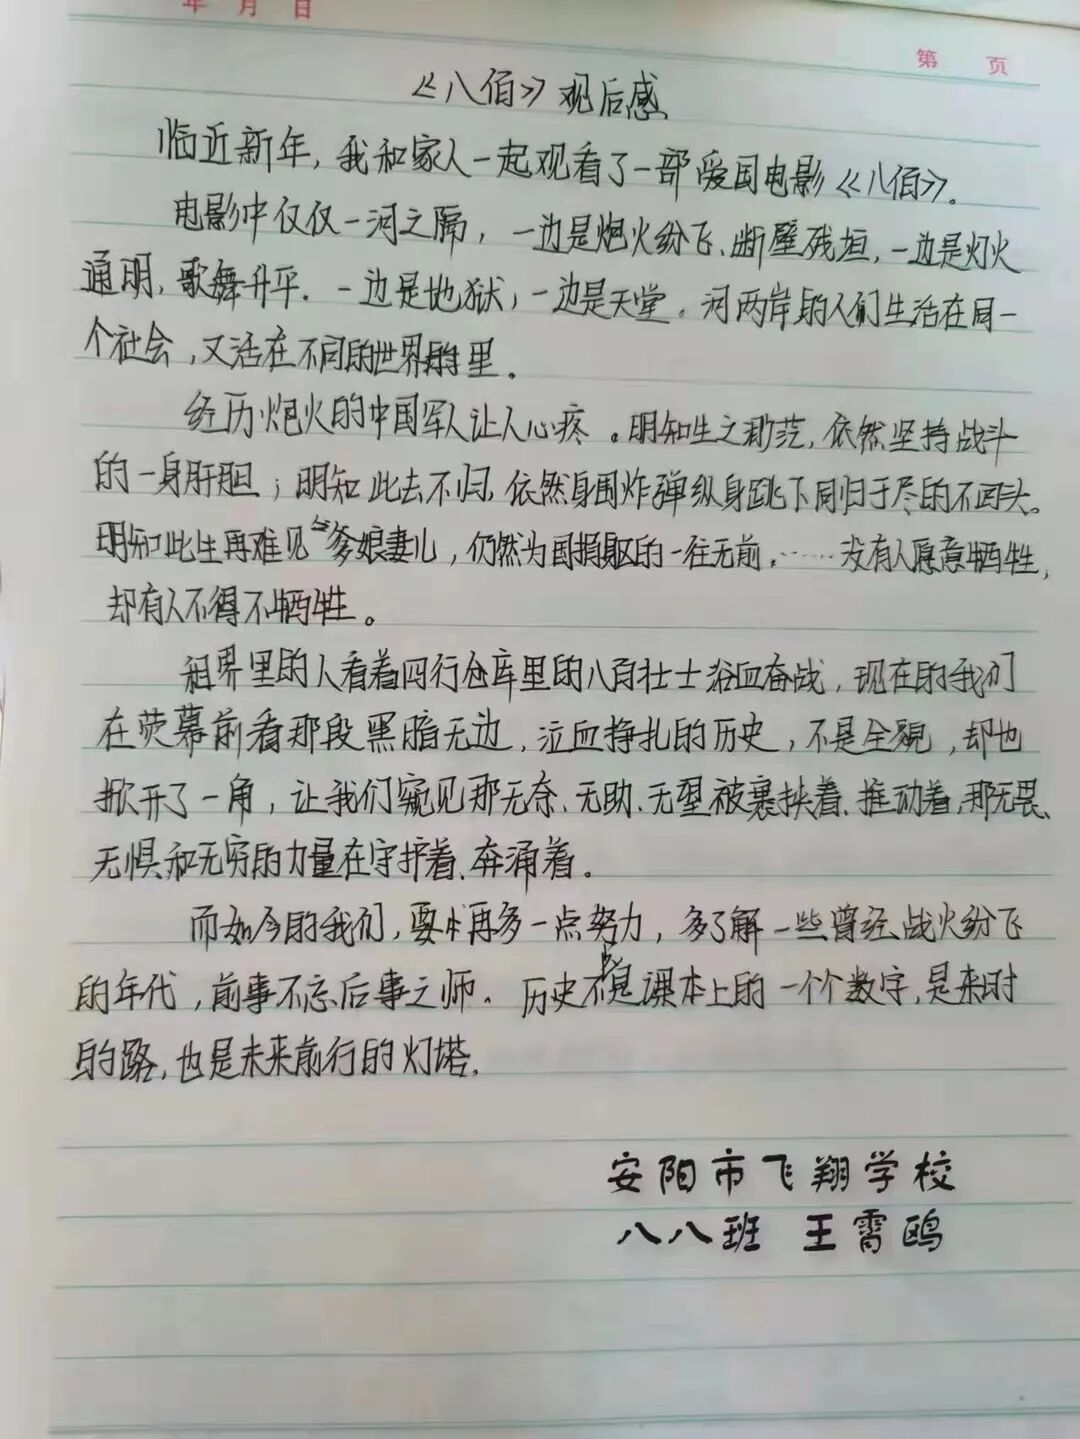 年 月 日
第 页
《八佰》观后感
临近新年，我和家人一起观看了一部爱国电影《八佰》。
电影中仅仅一河之隔，一边是炮火纷飞、断壁残垣，一边是灯火
通明，歌舞升平。一边是地狱，一边是天堂。河两岸的人们生活在同一
个社会，又活在不同的世界里。
经历炮火的中国军人让人心疼。明知生之渺茫，依然坚持战斗
的一身肝胆；明知此去不归，依然身围炸弹纵身跳下同归于尽的不回头。
明知此生再难见爹娘妻儿，仍然为国捐躯的一往无前，……没有人愿意牺牲，
却有人不得不牺牲。
租界里的人看着四行仓库里的八百壮士浴血奋战，现在的我们
在荧幕前看那段黑暗无边，泣血挣扎的历史，不是全貌，却也
掀开了一角，让我们窥见那无奈、无助、无望被裹挟着、推动着，那无畏、
无惧和无穷的力量在守护着、奔涌着。
而如今的我们，要再多一点努力，多了解一些曾经战火纷飞
的年代，前事不忘后事之师。历史不是课本上的一个个数字，是来时
的路，也是未来前行的灯塔。
安阳市飞翔学校
八八班 王霄鸥